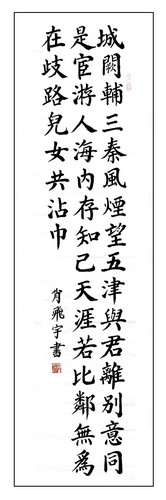 城闕輔三秦風煙望五津與君離別意同
是宦游人海內存知己天涯若比鄰無為
在歧路兒女共沾巾
肖飛宇書